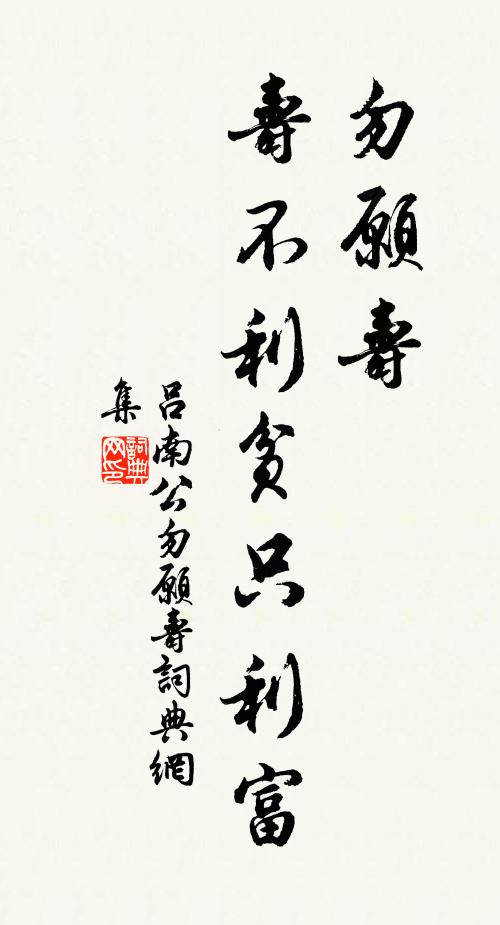 勿願壽
壽不利貧只利富
呂南公勿願壽詞典網
集
詞典
网印